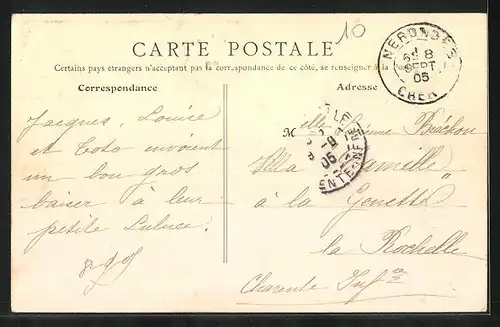 10
CARTE POSTALE
Certains pays étrangers n'acceptant pas la correspondance de ce côté, se renseigner à la
Correspondance
Adresse
NERONDES
8
SEPT
05
CHER
Jacques, Louise
et Toto envoient
un bon gros
baiser à leur
petite Luluce.
8-9-05
Melle
Villa "Camille"
à la Genette
la Rochelle
Charente Infre